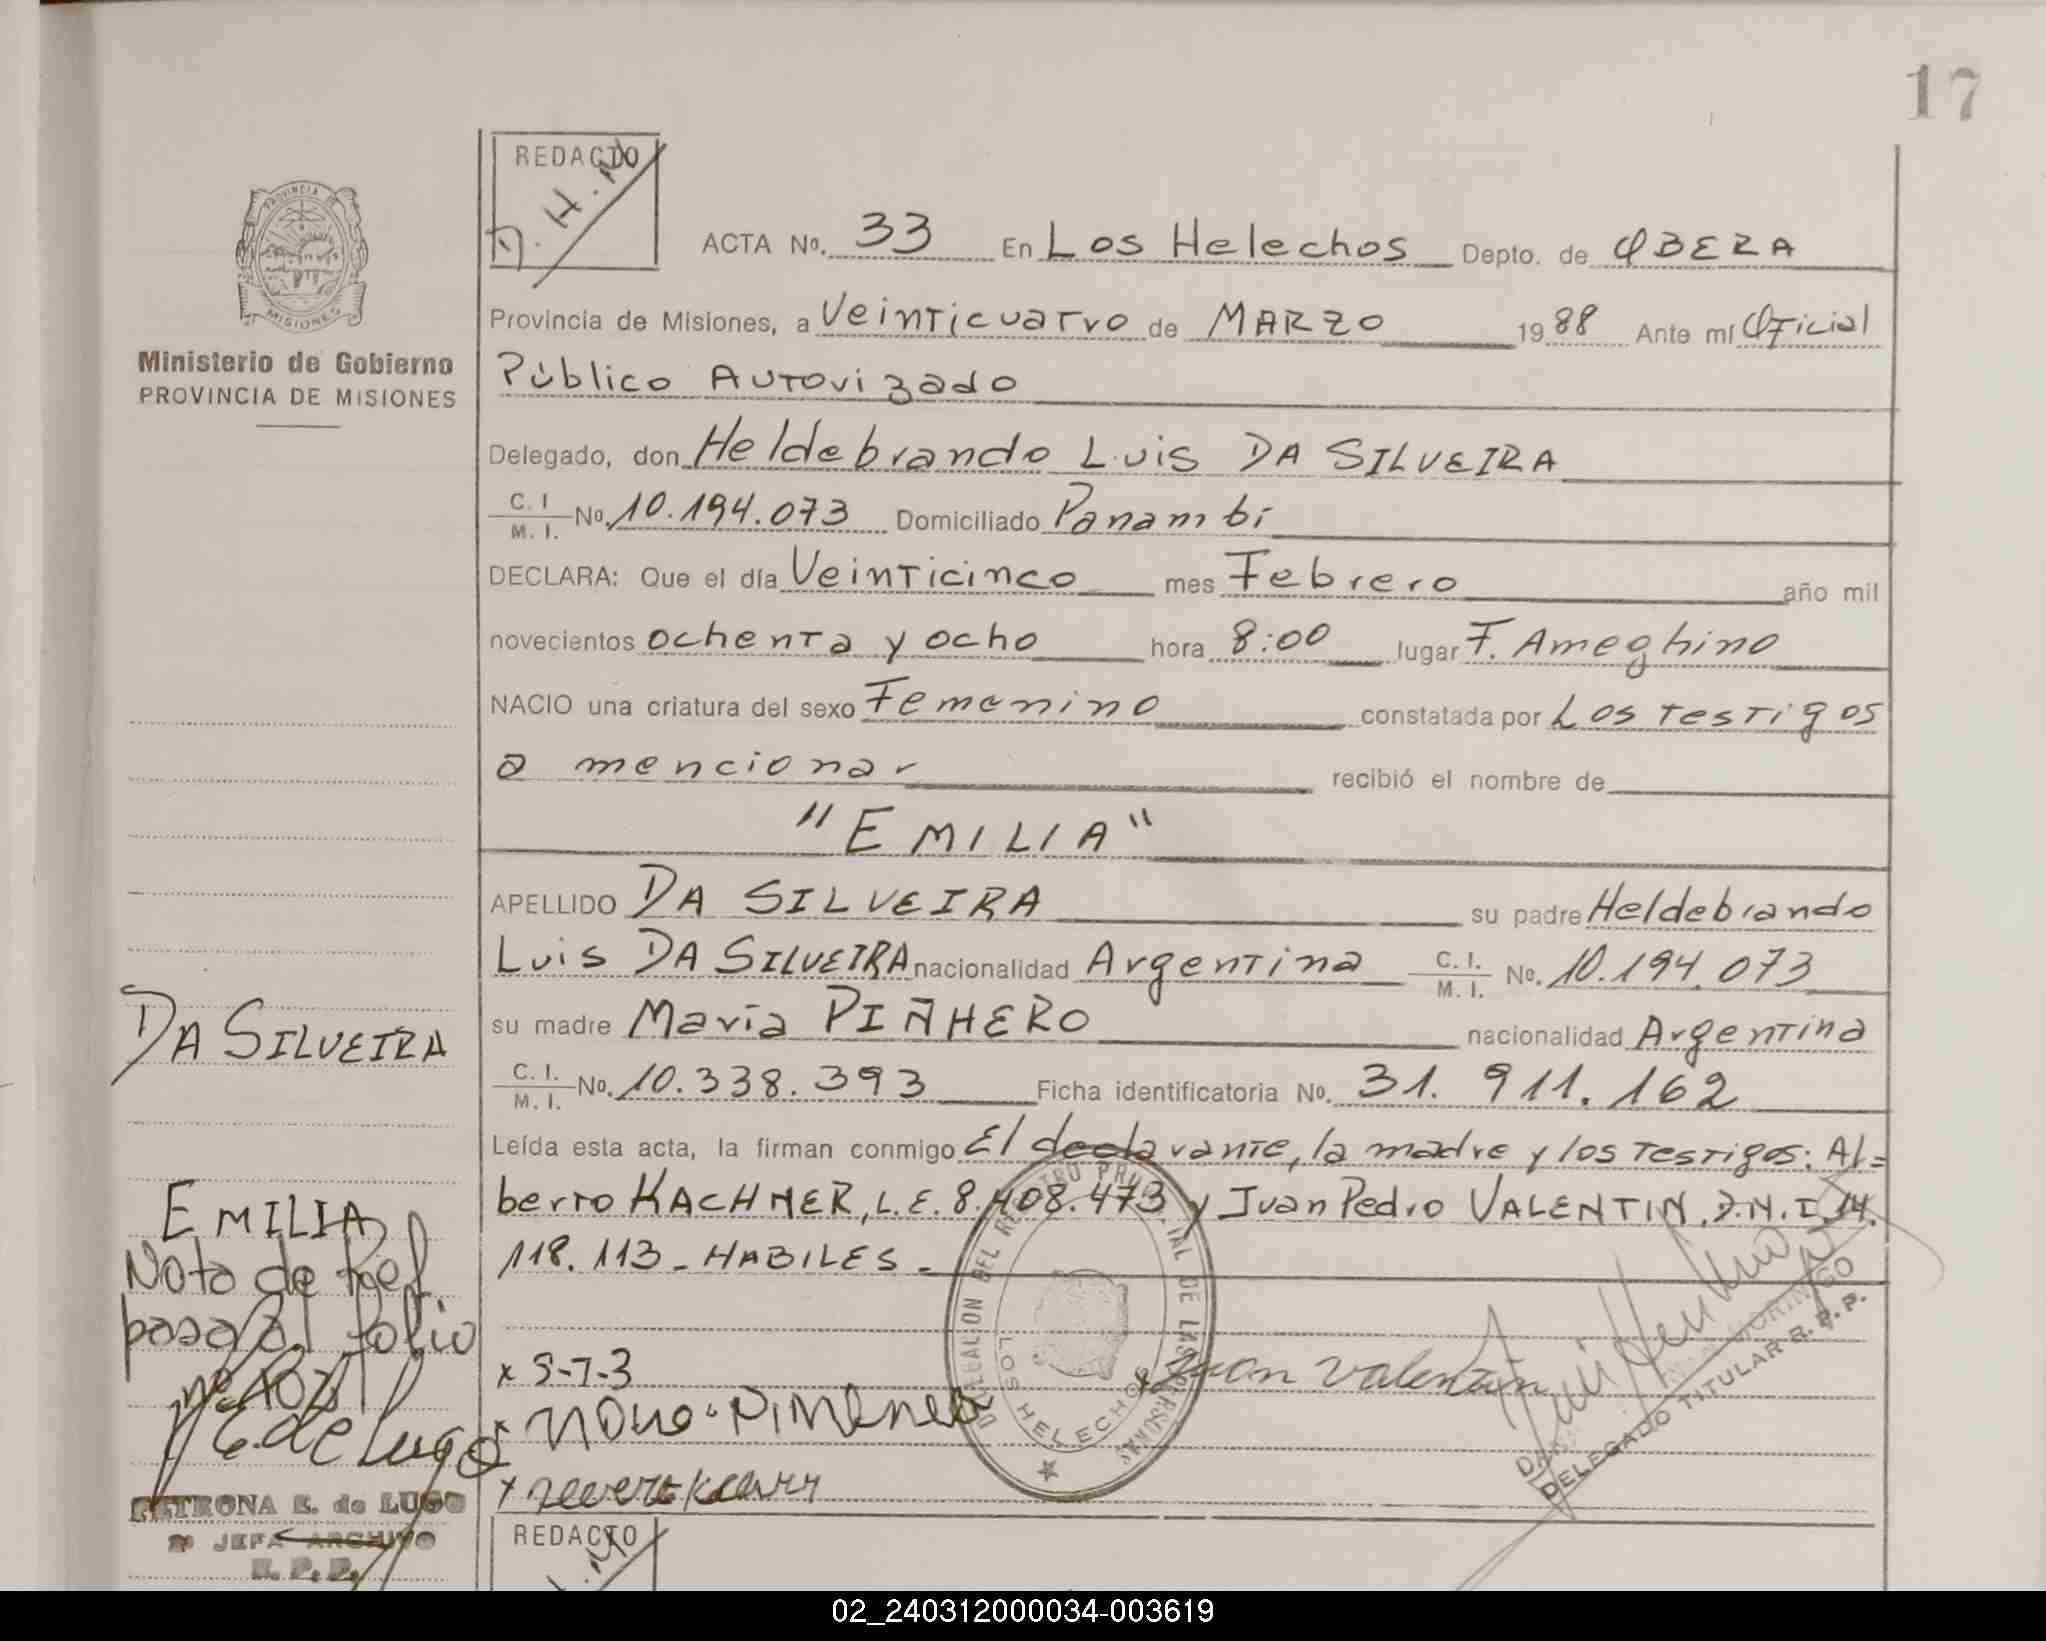 17
REDACTO
D.H.N
ACTA No. 33 En Los Helechos Depto. de OBERA
PROVINCIA DE
MISIONES
Provincia de Misiones, a Veinticuatro de MARZO 1988 Ante mí Oficial
Ministerio de Gobierno
PROVINCIA DE MISIONES
Público Autorizado
Delegado, don Heldebrando Luis DA SILVEIRA
C. I. M. I. No. 10.194.073 Domiciliado Panambí
DECLARA: Que el día Veinticinco mes Febrero año mil
novecientos ochenta y ocho hora 8:00 lugar F. Ameghino
NACIO una criatura del sexo Femenino constatada por Los testigos
a mencionar recibió el nombre de
"EMILIA"
APELLIDO DA SILVEIRA su padre Heldebrando
Luis DA SILVEIRA nacionalidad Argentina C. I. M. I. No. 10.194.073
su madre María PIÑHERO nacionalidad Argentina
C. I. M. I. No. 10.338.393 Ficha identificatoria No. 31.911.162
Leída esta acta, la firman conmigo El declarante, la madre y los testigos: Al=
berto KACHNER, L.E. 8.408.473 y Juan Pedro VALENTIN, D.N.I. 14.
118.113 - HABILES -
DA SILVEIRA
EMILIA
Nota de Ref.
pasa al folio
DELEGACION DEL REGISTRO PROVINCIAL DE LAS PERSONAS
LOS HELECHOS
x Juan Valentin
DELEGADO TITULAR R.P.P.
E. de Lugo
PETRONA E. de LUGO
JEFA ARCHIVO
R. P. P.
REDACTO
02_240312000034-003619